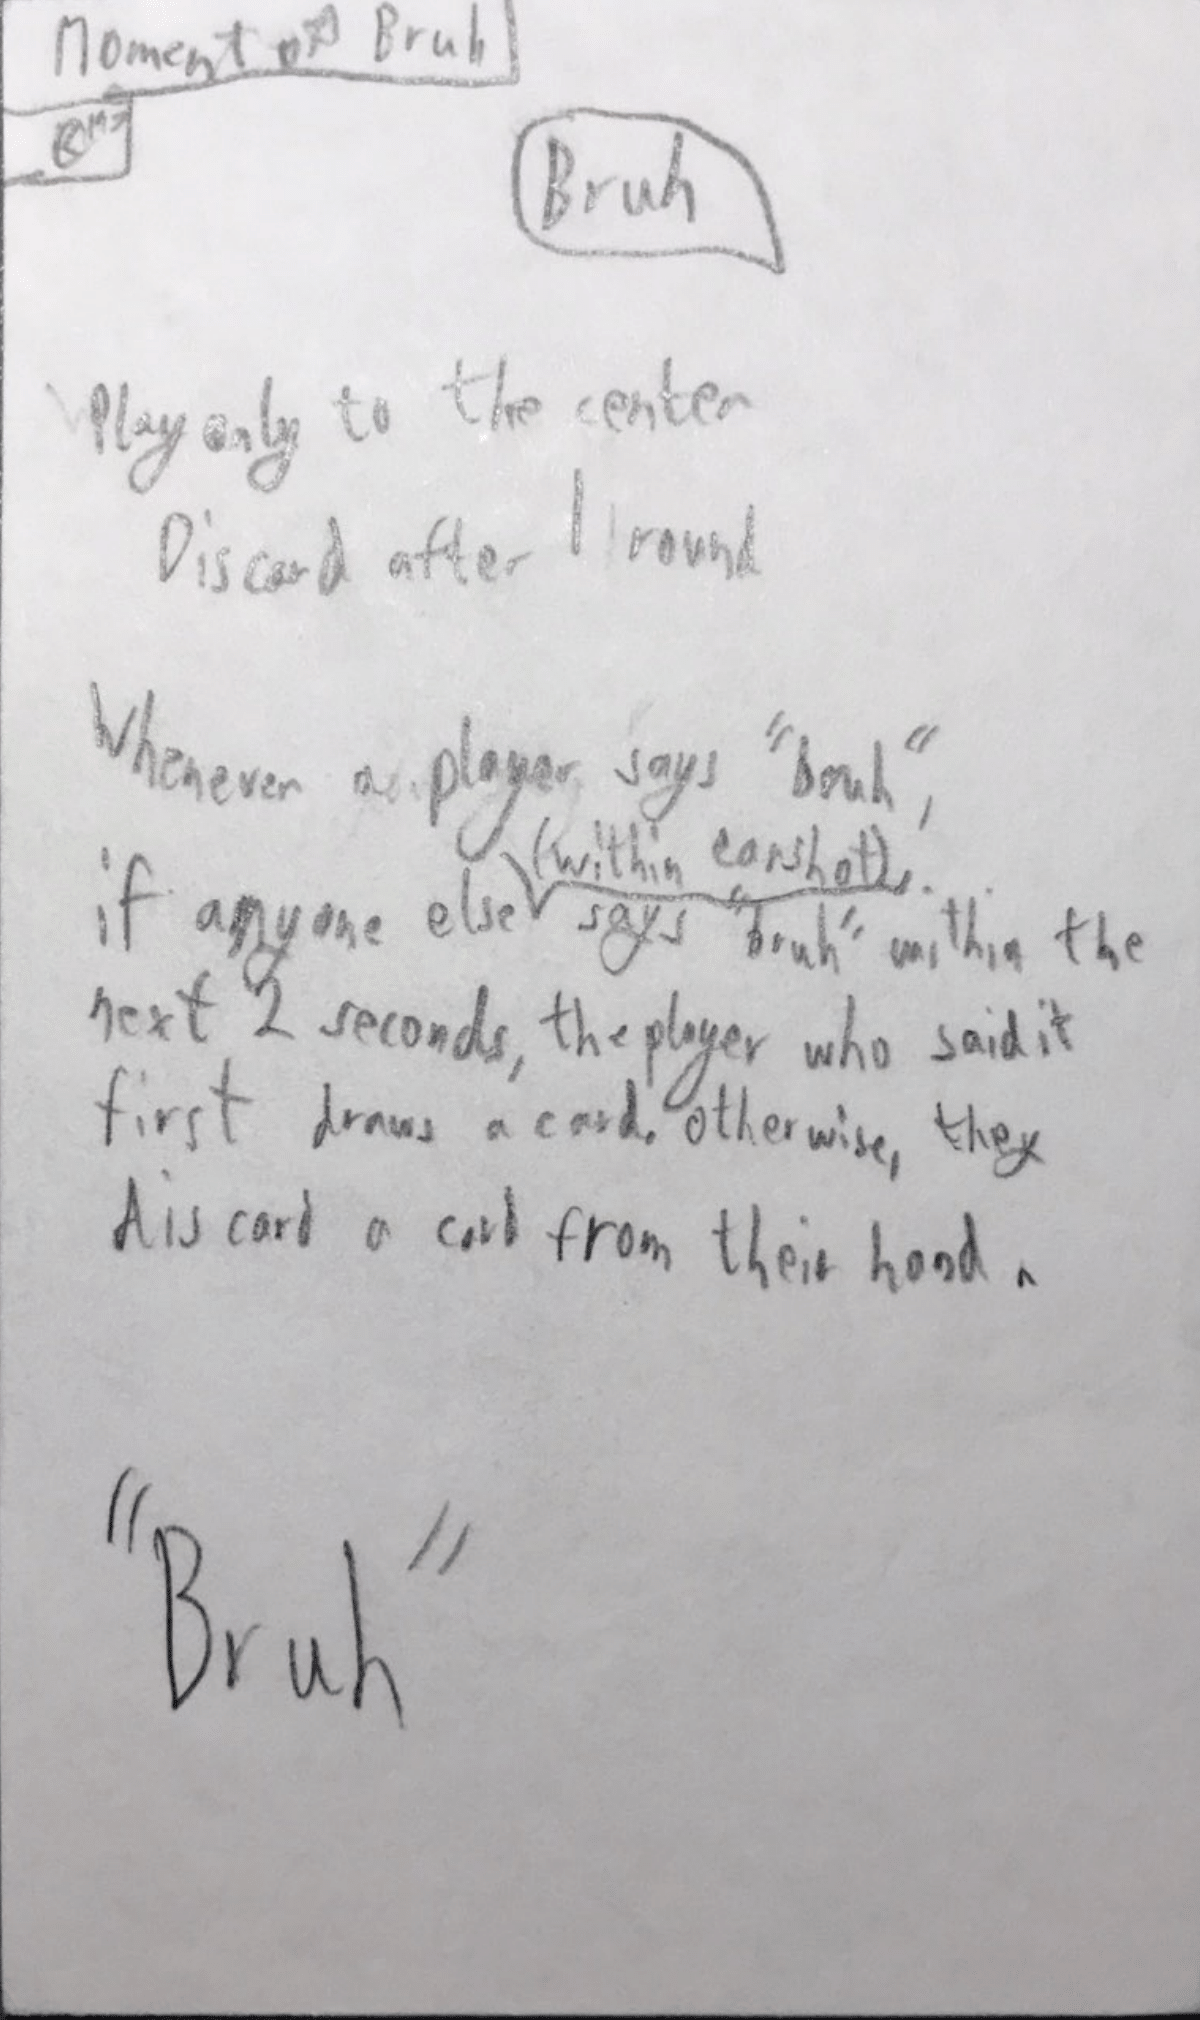 Moment of Bruh
Bruh
Play only to the center
Discard after 1 round
Whenever a player says "bruh",
(within earshot)
if anyone else says "bruh" within the
next 2 seconds, the player who said it
first draws a card. otherwise, they
discard a card from their hand.
"Bruh"